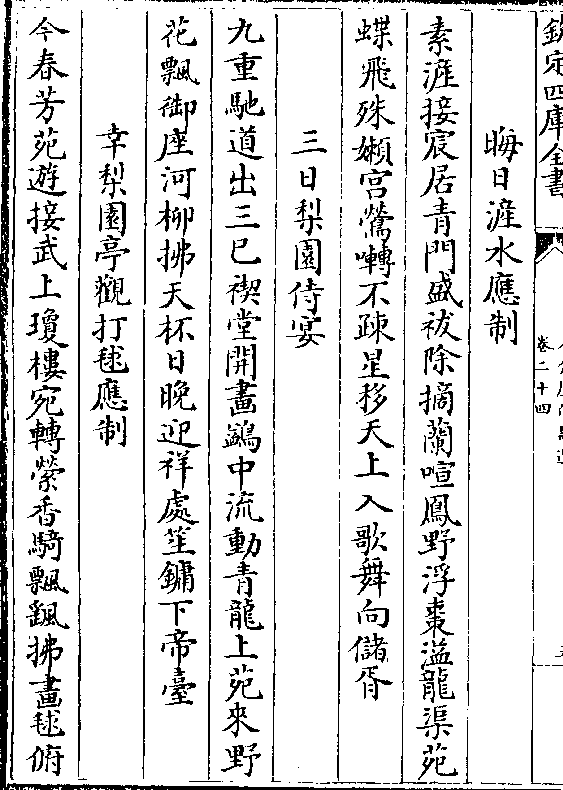 欽定四庫全書
卷二十四
晦日滻水應制
素滻接宸居青門盛祓除摘蘭喧鳳野浮棗溢龍渠苑
蝶飛殊嬾宫鶯囀不疎星移天上入歌舞向儲胥
三日梨園侍宴
九重馳道出三巳禊堂開畫鷁中流動青龍上苑來野
花飄御座河柳拂天杯日晚迎祥處笙鏞下帝臺
幸梨園亭觀打毬應制
今春芳苑遊接武上瓊樓宛轉縈香騎飄颻拂畫毬俯